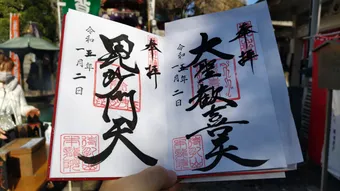 奉拝
大聖歓喜天
令和五年
一月二日
奉拝
毘沙門天
令和五年
一月二日